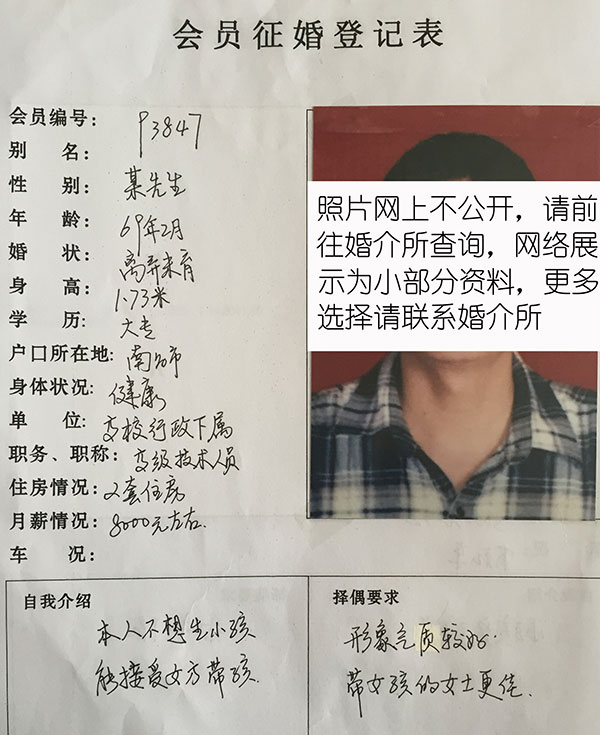 会员征婚登记表
会员编号: 93847
别 名:
性 别: 某先生
年 龄: 69年2月
婚 状: 离异未育
身 高: 1.73米
学 历: 大专
户口所在地: 南宁市
身体状况: 健康
单 位: 高校行政下属
职务、职称: 高级技术人员
住房情况: 2套住房
月薪情况: 8000元左右.
车 况:
照片网上不公开，请前
往婚介所查询，网络展
示为小部分资料，更多
选择请联系婚介所
自我介绍
本人不想生小孩
能接受女方带孩.
择偶要求
形象气质较好.
带女孩的女士更佳.